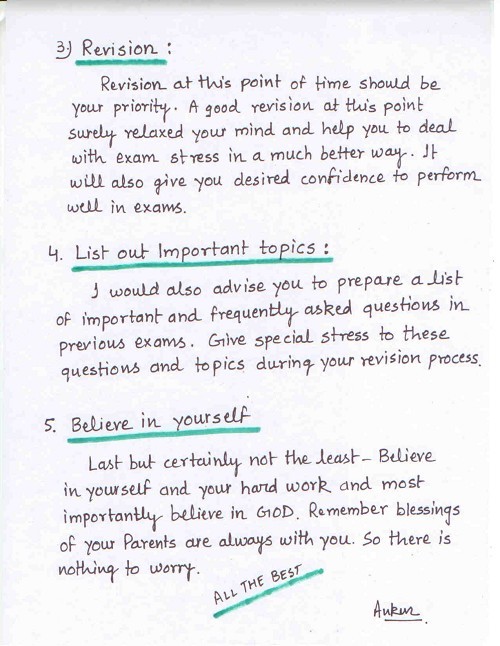 3) Revision :
Revision at this point of time should be
your priority. A good revision at this point
surely relaxed your mind and help you to deal
with exam stress in a much better way. It
will also give you desired confidence to perform
well in exams.
4. List out Important topics :
I would also advise you to prepare a list
of important and frequently asked questions in
previous exams. Give special stress to these
questions and topics during your revision process.
5. Believe in yourself
Last but certainly not the least - Believe
in yourself and your hard work and most
importantly believe in GOD. Remember blessings
of your Parents are always with you. So there is
nothing to worry.
ALL THE BEST
Ankur